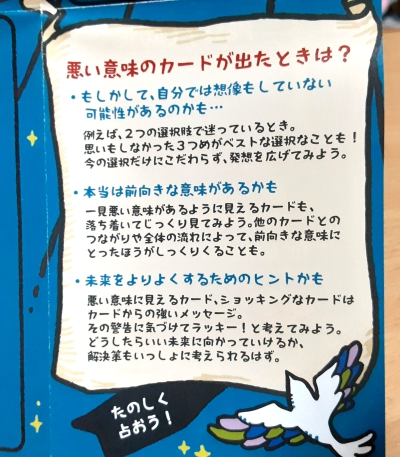 悪い意味のカードが出たときは？
・もしかして、自分では想像もしていない
可能性があるのかも…
例えば、2つの選択肢で迷っているとき。
思いもしなかった3つめがベストな選択なことも！
今の選択だけにこだわらず、発想を広げてみよう。
・本当は前向きな意味があるかも
一見悪い意味があるように見えるカードも、
落ち着いてじっくり見てみよう。他のカードとの
つながりや全体の流れによって、前向きな意味に
とったほうがしっくりくることも。
・未来をよりよくするためのヒントかも
悪い意味に見えるカード、ショッキングなカードは
カードからの強いメッセージ。
その警告に気づけてラッキー！と考えてみよう。
どうしたらいい未来に向かっていけるか、
解決策もいっしょに考えられるはず。
たのしく
占おう！